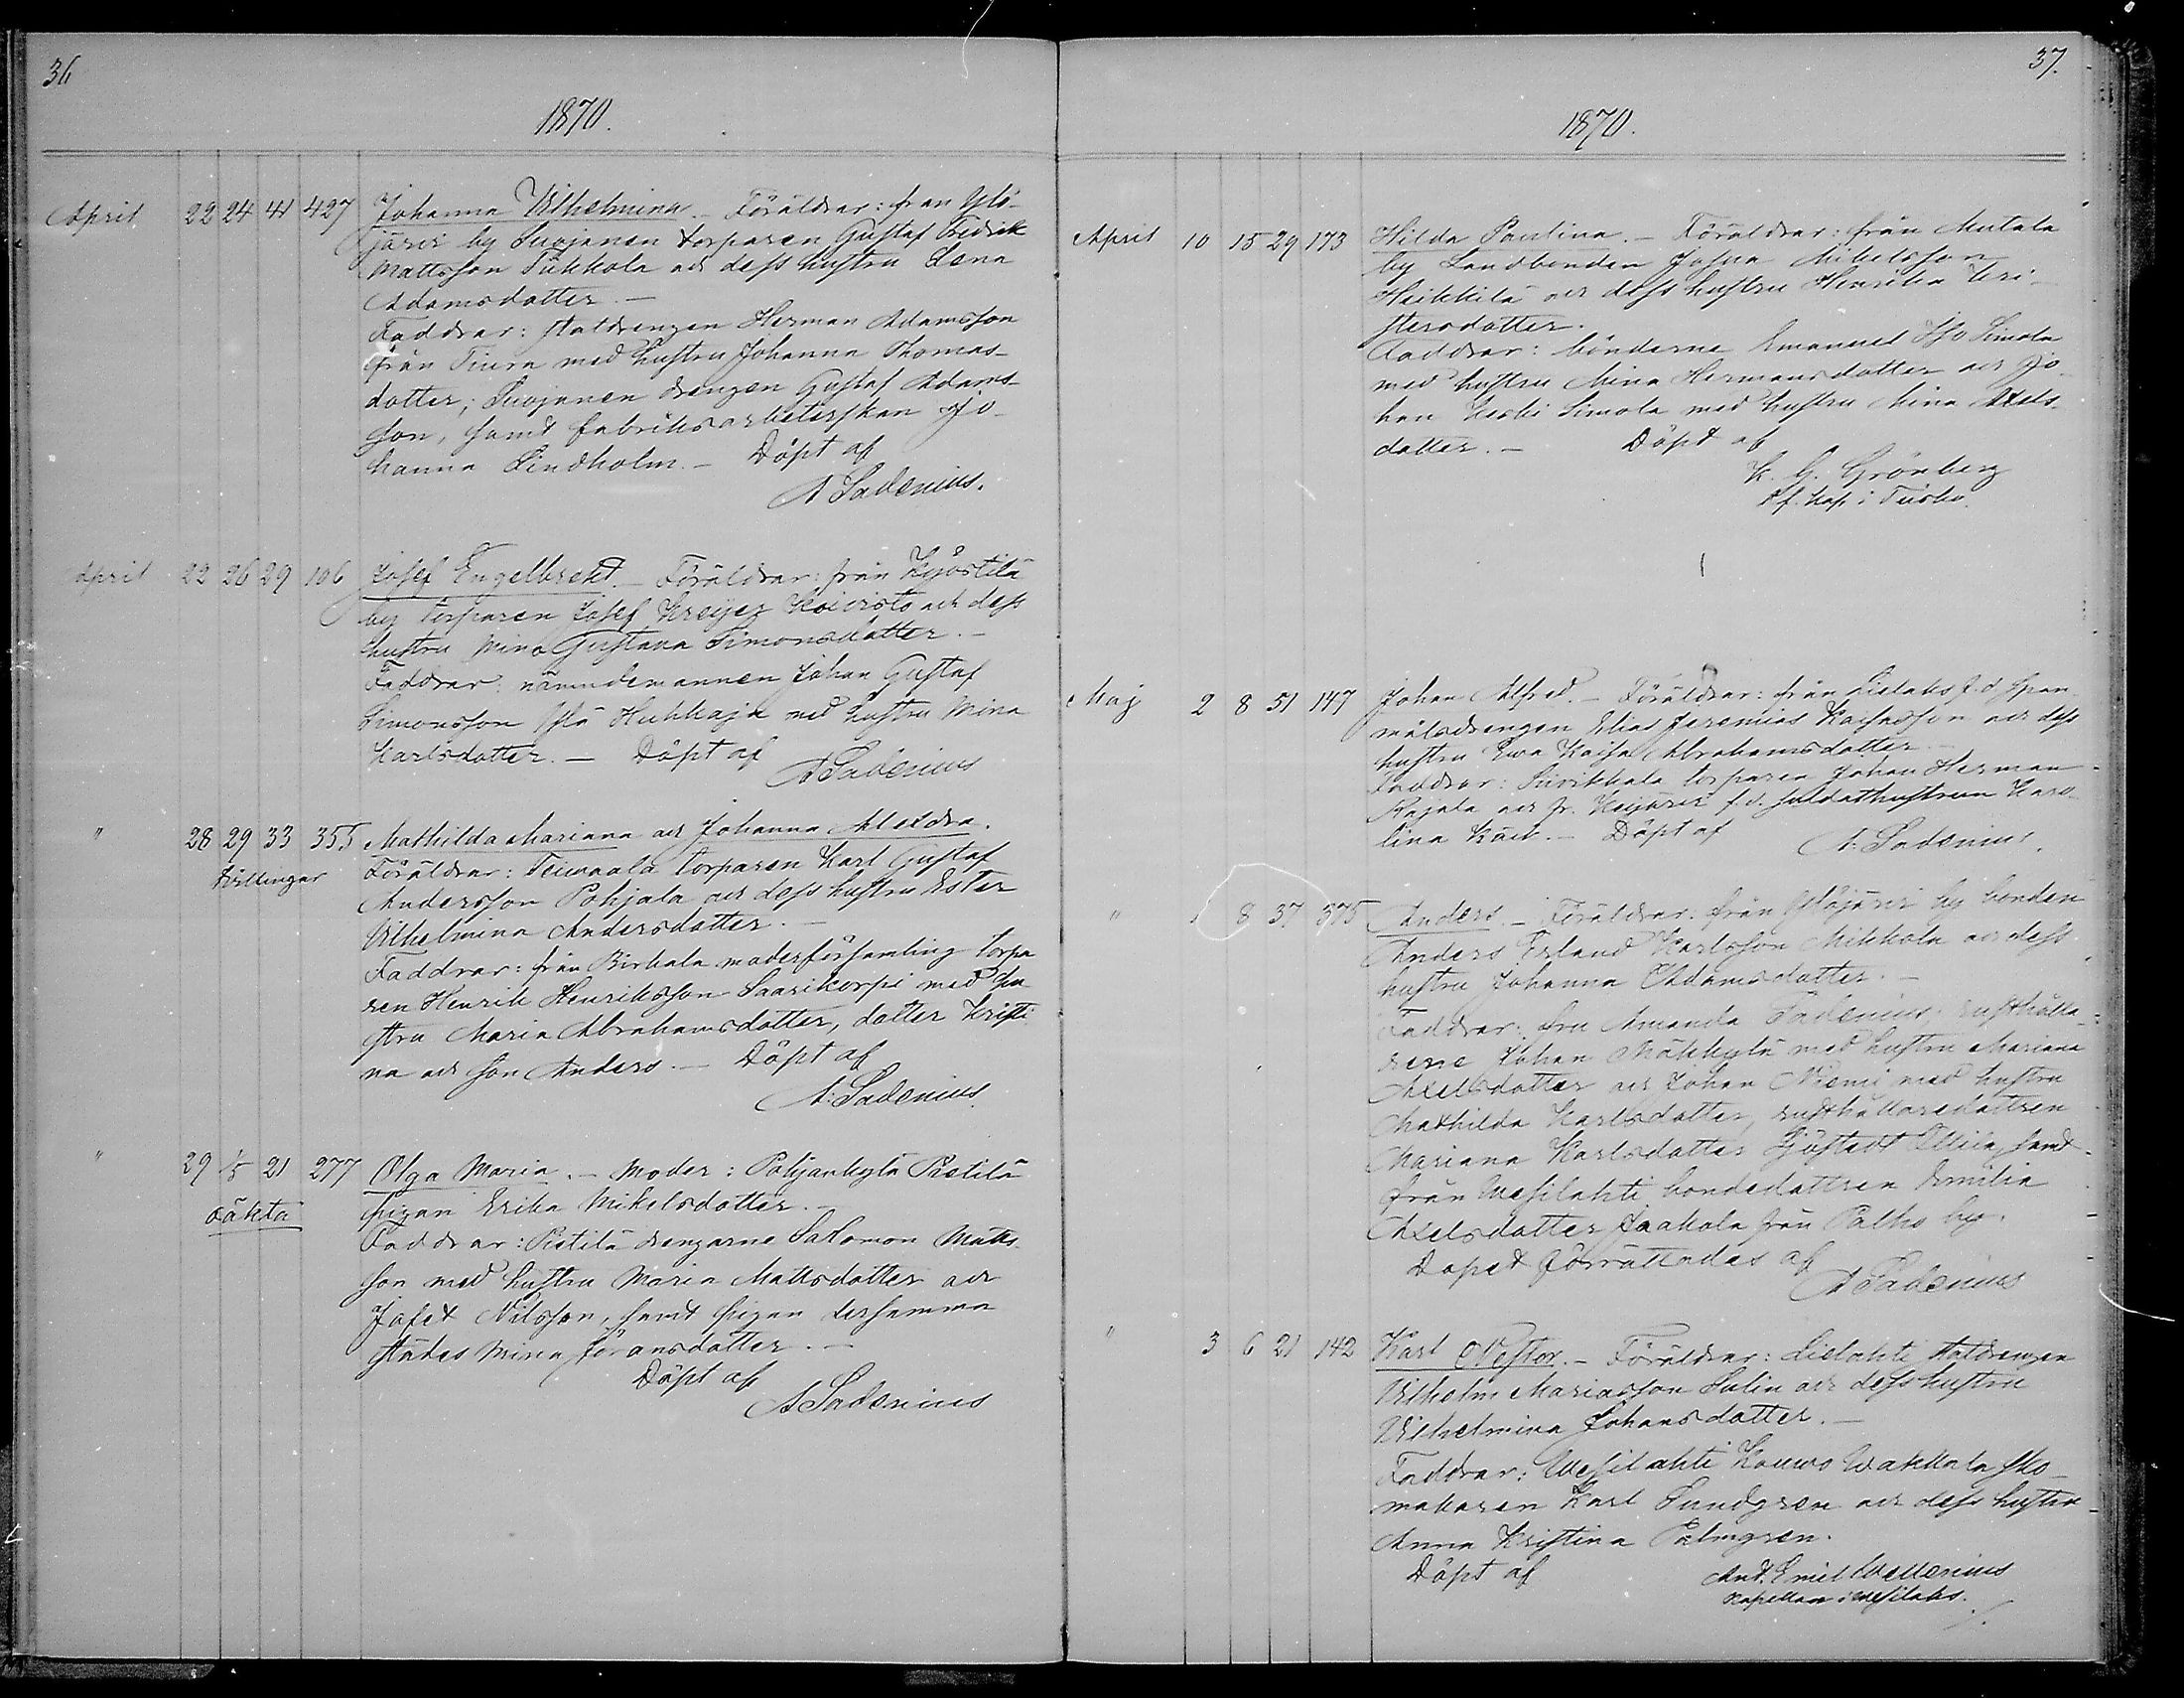 36
1870.
April 22 24 41 427 Johanna Vilhelmina. – Föräldrar: från Ylö-
järvi by Suojanen torparen Gustaf Fredrik
Mattsson Tükkola och dess hustru Lena
Adamsdotter. –
Faddrar: statdrengen Herman Adamsson
från Tiura med hustru Johanna Thomas-
dotter; Suojanen drengen Gustaf Adams-
son, samt fabriksarbeterskan Jo-
hanna Lindholm. – Döpt af
A Sadenius.
April 22 26 29 106 Josef Engelbrekt. – Föräldrar: från Kyöstilä
by torparen Josef Koivisto och dess
hustru Mina Gustava Simonsdotter. –
Faddrar: nämndemannen Johan Gustaf
Simonsson Huhkaja med hustru Mina
Karlsdotter. – Döpt af
A Sadenius
" 28 29 33 355 Mathilda Mariana och Johanna Alexdra.
tvillingar Föräldrar: Teivaala torparen Karl Gustaf
Andersson Pohjala och dess hustru Ester
Vilhelmina Andersdotter. –
Faddrar: från Birkala moderförsamling torpa
ren Henrik Henriksson Saarikorpi med hu
stru Maria Abrahamsdotter, dotter Kristi
na och son Anders. – Döpt af
A: Sadenius.
" 29 1/5 21 277 Olga Maria. – Moder: Pohjankylä Pietilä
oäkta pigan Erika Mikelsdotter. –
Faddrar: Pietilä drengarne Salomon Matts-
son med hustru Maria Mattsdotter och
Jafet Nilsson, samt pigan dersamma
städes Mina Göransdotter. –
Döpt af
A Sadenius
37.
1870.
April 10 15 29 173 Hilda Paulina. – Föräldrar: från Mutala
by Landbonden Josua Mikelsson
Heikkilä och dess hustru Henrika Kri-
stersdotter.
Faddrar: bönderne Emanuel Iso Simola
med hustru Mina Hermansdotter och Jo-
han Keski Simola med hustru Mina Axels-
dotter. – Döpt af
K. G. Grönberg
Kap. i
Maj 2 8 31 147 Johan Alfred. – Föräldrar: från Lielaks f.d. span-
målsdrengen Elias Jeremias Kaisasson och dess
hustru Eva Kaisa Abrahamsdotter. –
Faddrar: Siivikkala torparen Johan Herman
Rajala och fr. Keijärvi f.d. soldathustrun Karo-
lina – Döpt af
A. Sadenius.
" 1 8 37 375 Anders. – Föräldrar: från Ylöjärvi by bonden
Anders Erland Karlsson Mikkola och dess
hustru Johanna Adamsdotter. –
Faddrar: fru Amanda Sadenius, rusthålla-
rene Johan Mäkkylä med hustru Mariana
Axelsdotter och Johan Niemi med hustru
Mathilda Karlsdotter, rusthållaredottren
Mariana Karlsdotter Sjöstedt samt
från Wesilahti bondedottren Emilia
Axelsdotter Jaakola från Palho by.
Dopet förrättades af
A Sadenius
" 3 6 21 142 Karl Nestor. – Föräldrar: Lielahti statdrengen
Vilhelm Mariasson Salin och dess hustru
Vilhelmina Johansdotter. –
Faddrar: Wesilahti Kouwo Wakkala sko-
makaren Karl Sundgren och dess hustru
Anna Kristina Palmgren.
Döpt af And. Emil Wellenius
Kapellan i Wesilaks.